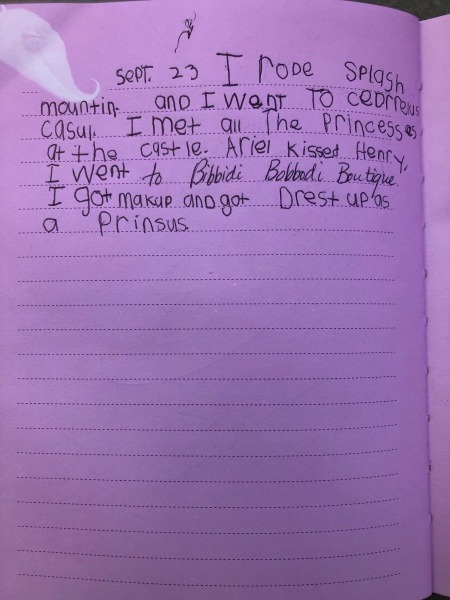 Sept. 23 I rode Splash
mountin. and I went To cedrrelus
casul. I met all The Princesses
at the castle. Ariel kissed Henry.
I went to Bibbidi Bobbodi Boutique.
I got makup and got Drest up as
a Prinsus